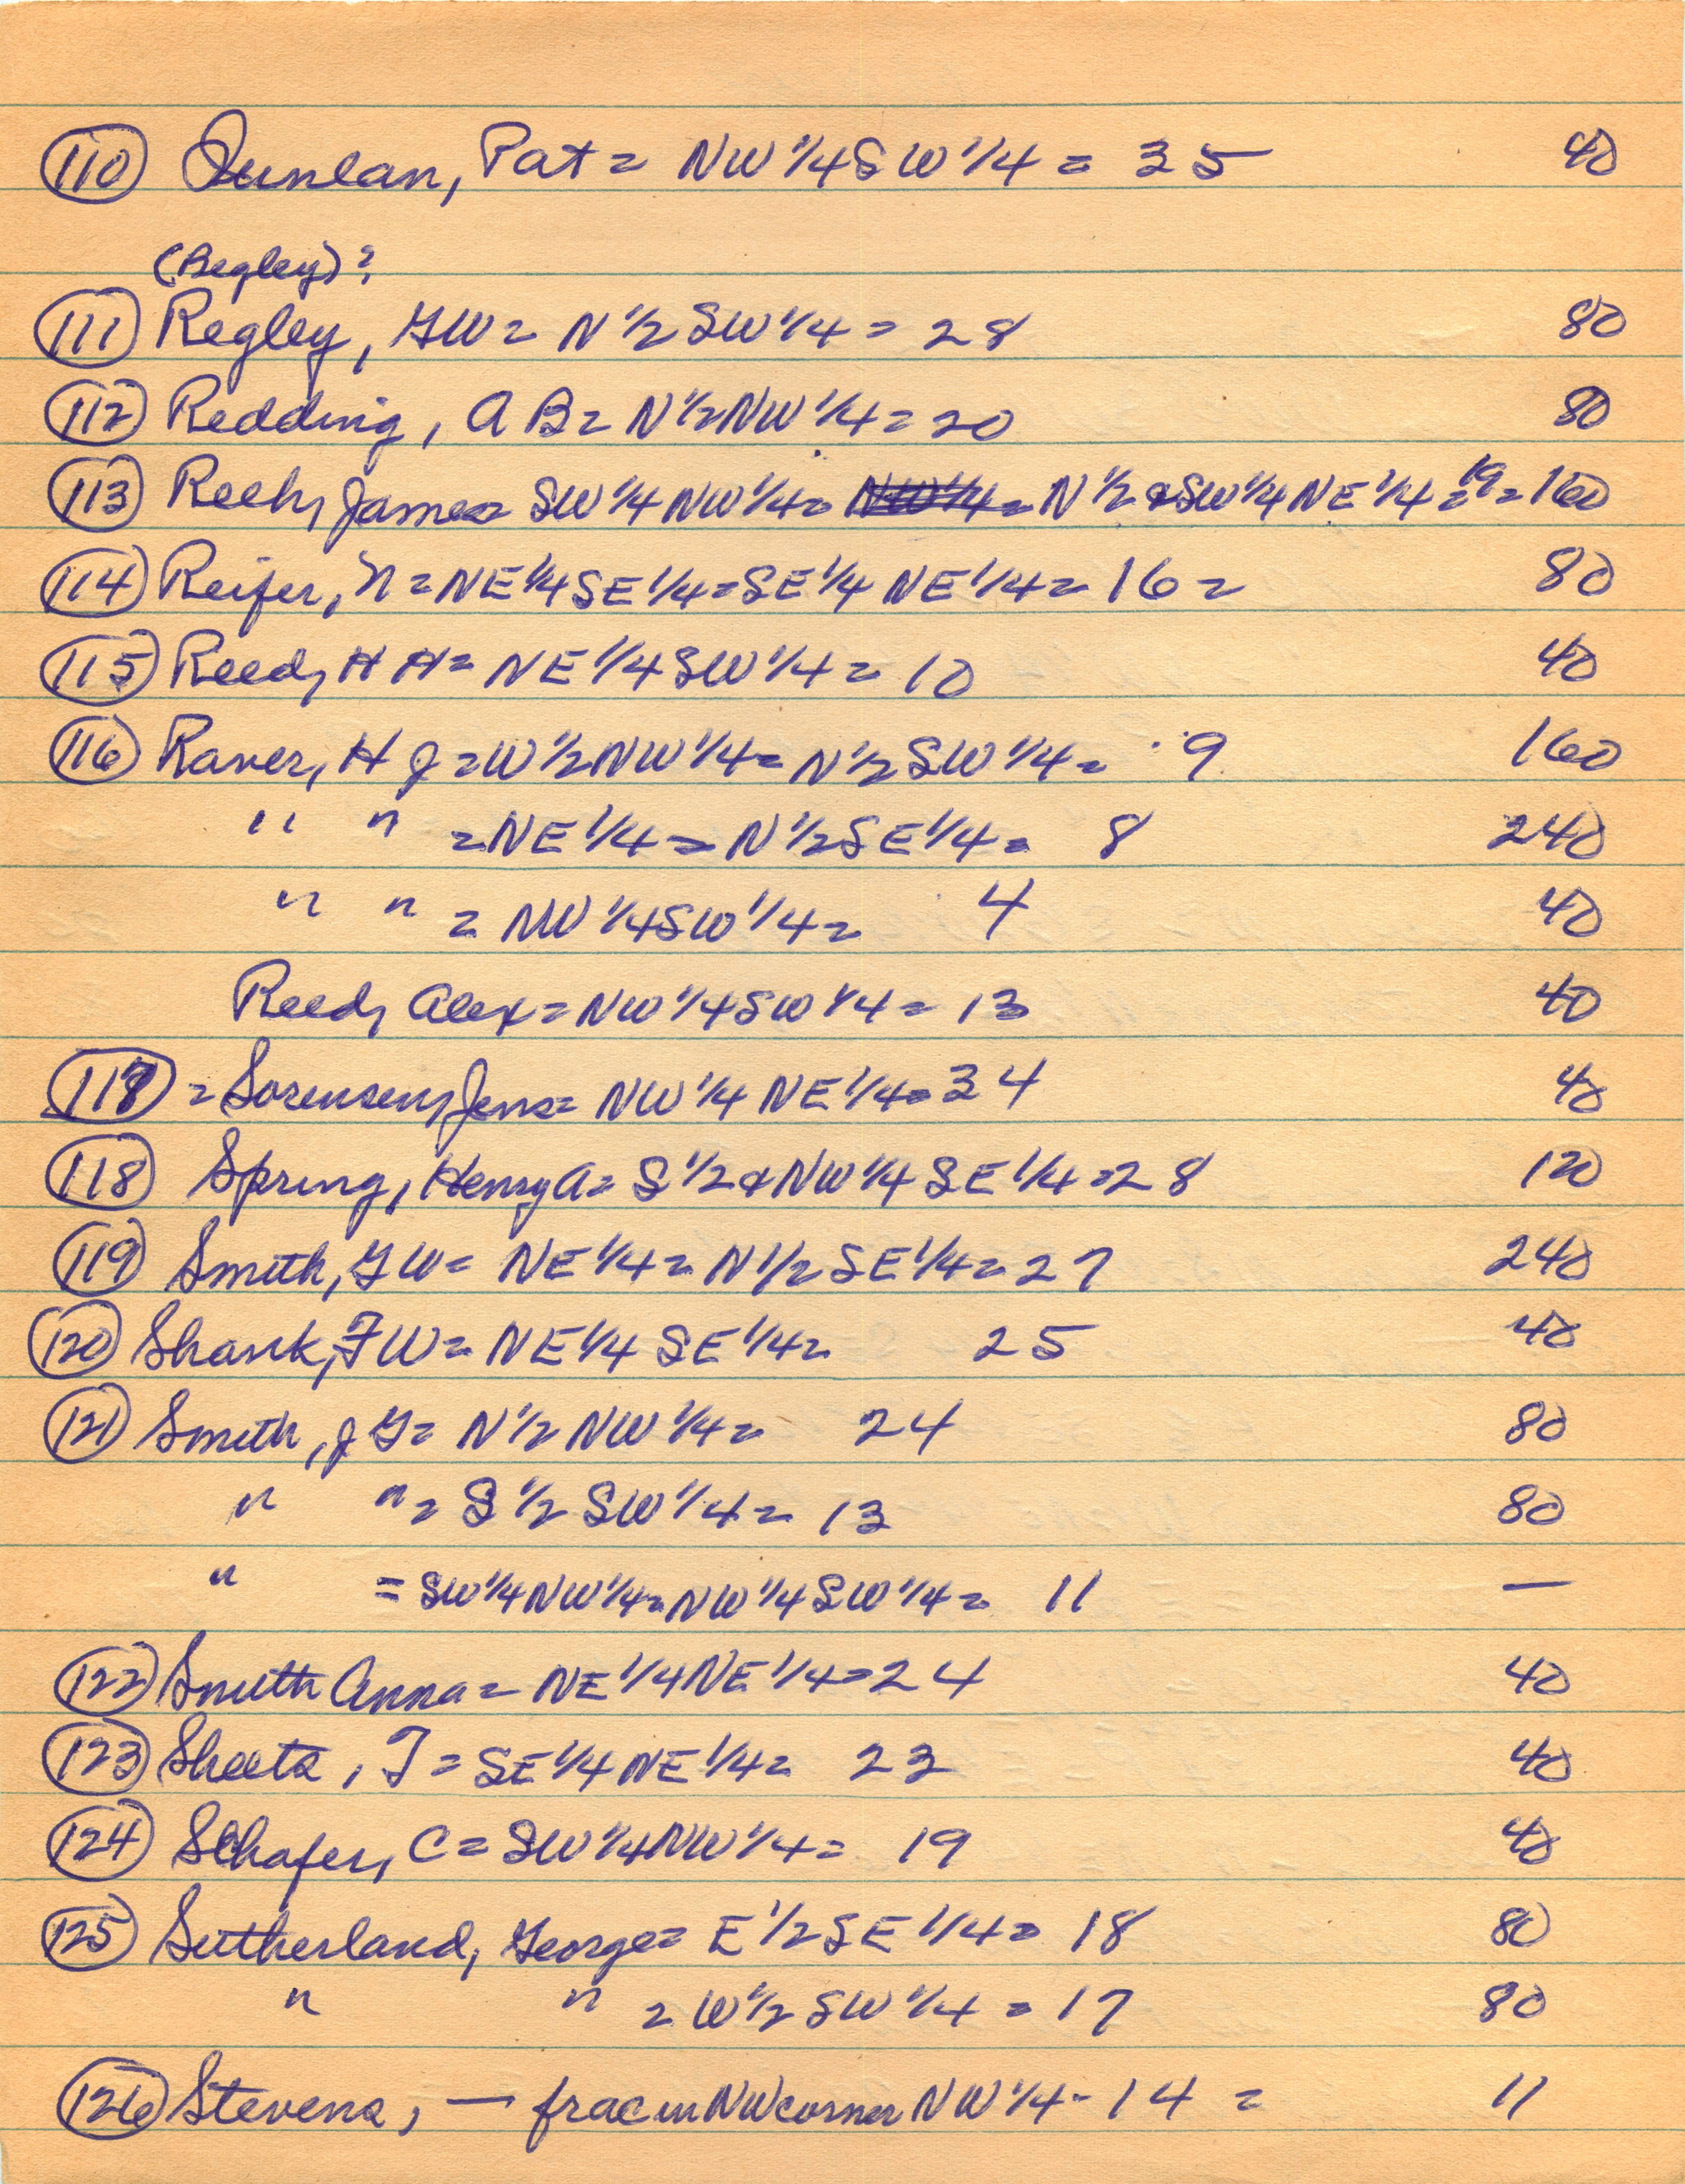 110 Qunlan, Pat = NW 1/4 SW 1/4 = 35 40
(Begley)?
111 Regley, GW = N 1/2 SW 1/4 = 28 80
112 Redding, A B = N 1/2 NW 1/4 = 20 80
113 James = SW 1/4 NW 1/4 = N 1/2 & SW 1/4 NE 1/4 = 19 = 160
114 Reifer, N = NE 1/4 SE 1/4 = SE 1/4 NE 1/4 = 16 = 80
115 Reed, H H = NE 1/4 SW 1/4 = 10 40
116 Raver, H J = W 1/2 NW 1/4 = N 1/2 SW 1/4 = 9 160
" " = NE 1/4 = N 1/2 SE 1/4 = 8 240
" " = NW 1/4 SW 1/4 = 4 40
Reed, Alex = NW 1/4 SW 1/4 = 13 40
117 = Sorensen, Jens = NW 1/4 NE 1/4 = 34 40
118 Spring, Henry A = S 1/2 & NW 1/4 SE 1/4 = 28 120
119 Smith, GW = NE 1/4 = N 1/2 SE 1/4 = 27 240
120 Shank, FW = NE 1/4 SE 1/4 = 25 40
121 Smith, J G = N 1/2 NW 1/4 = 24 80
" " = S 1/2 SW 1/4 = 13 80
" = SW 1/4 NW 1/4 = NW 1/4 SW 1/4 = 11 —
122 Smith Anna = NE 1/4 NE 1/4 = 24 40
123 Sheets, T = SE 1/4 NE 1/4 = 23 40
124 Schafer, C = SW 1/4 NW 1/4 = 19 40
125 Sutherland, George = E 1/2 SE 1/4 = 18 80
" " = W 1/2 SW 1/4 = 17 80
126 Stevens, — frac in NW corner NW 1/4 - 14 = 11